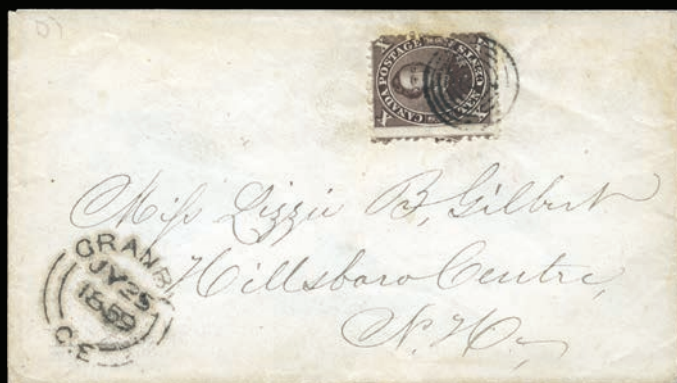 CANADA POSTAGE
TEN CENTS
X
X
X
X
Miss Lizzie B, Gilbert
Hillsboro Centre,
N. H.
GRANBY
JY 25
1859
C.E